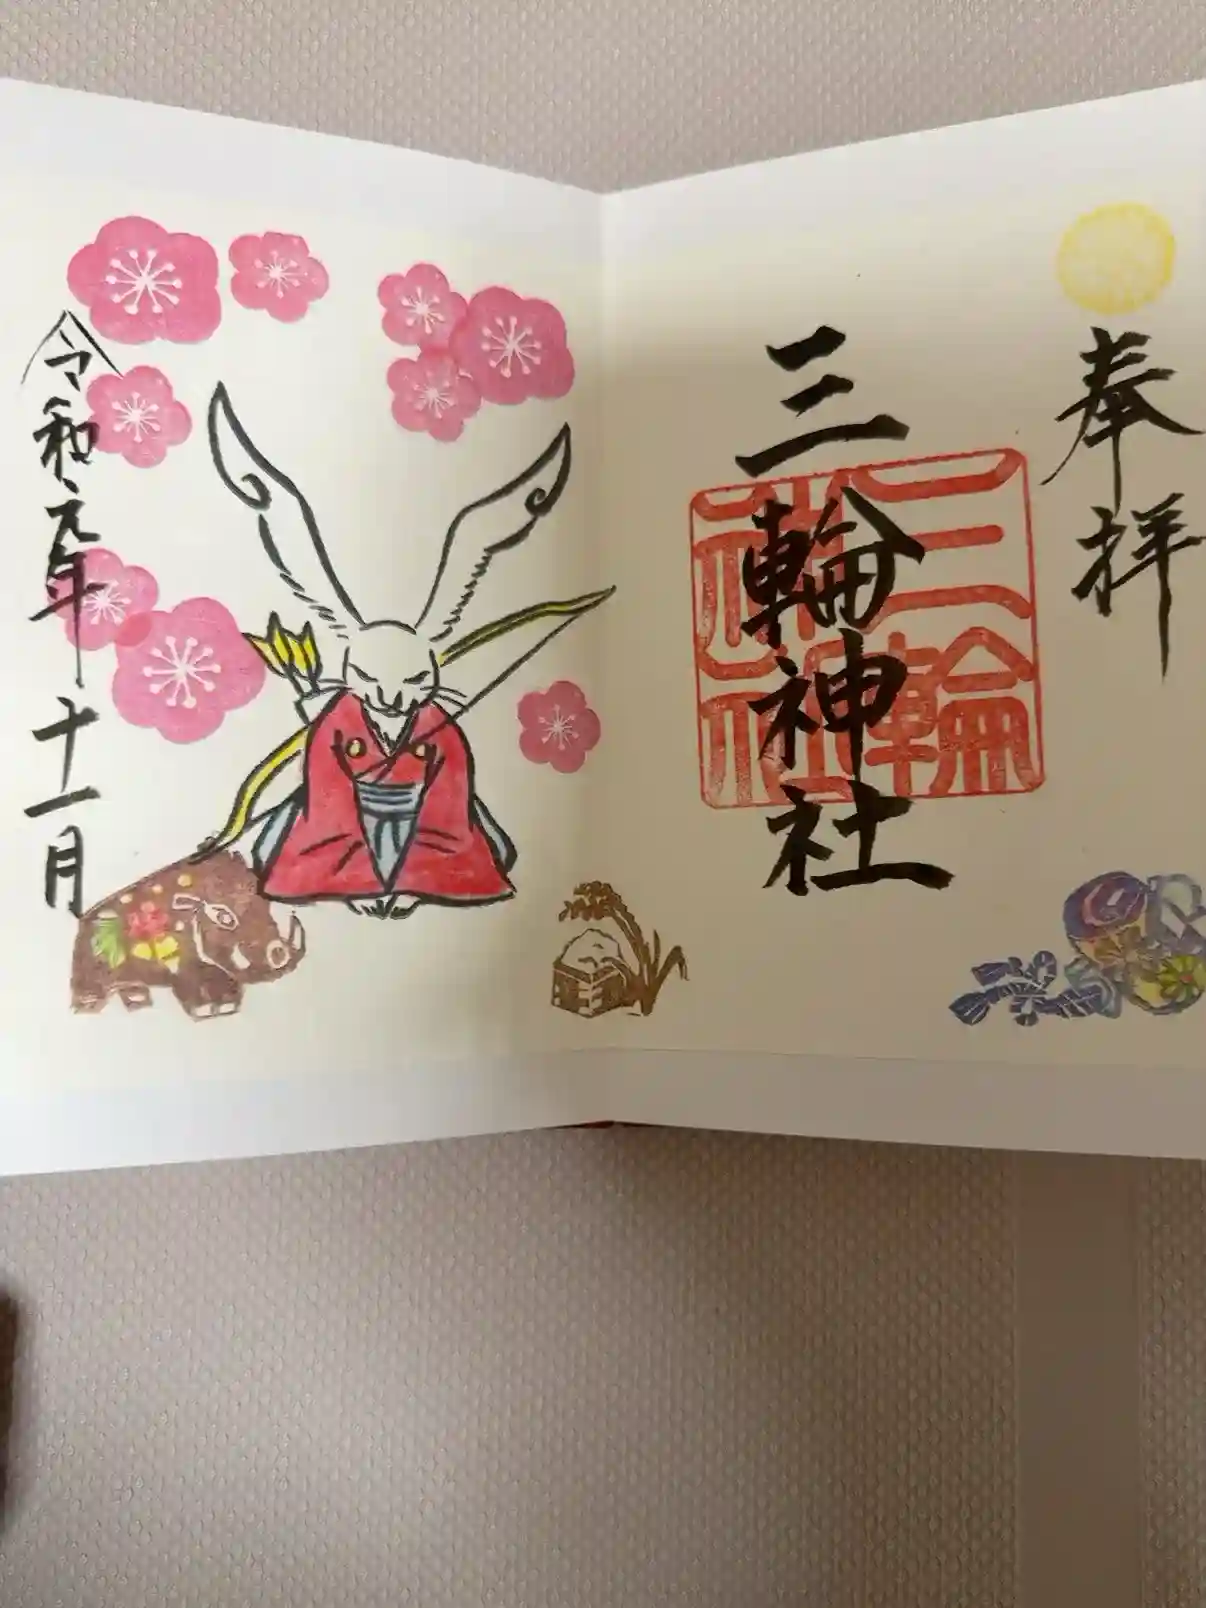 奉拝
三輪神社
三輪
神社
令和元年十一月